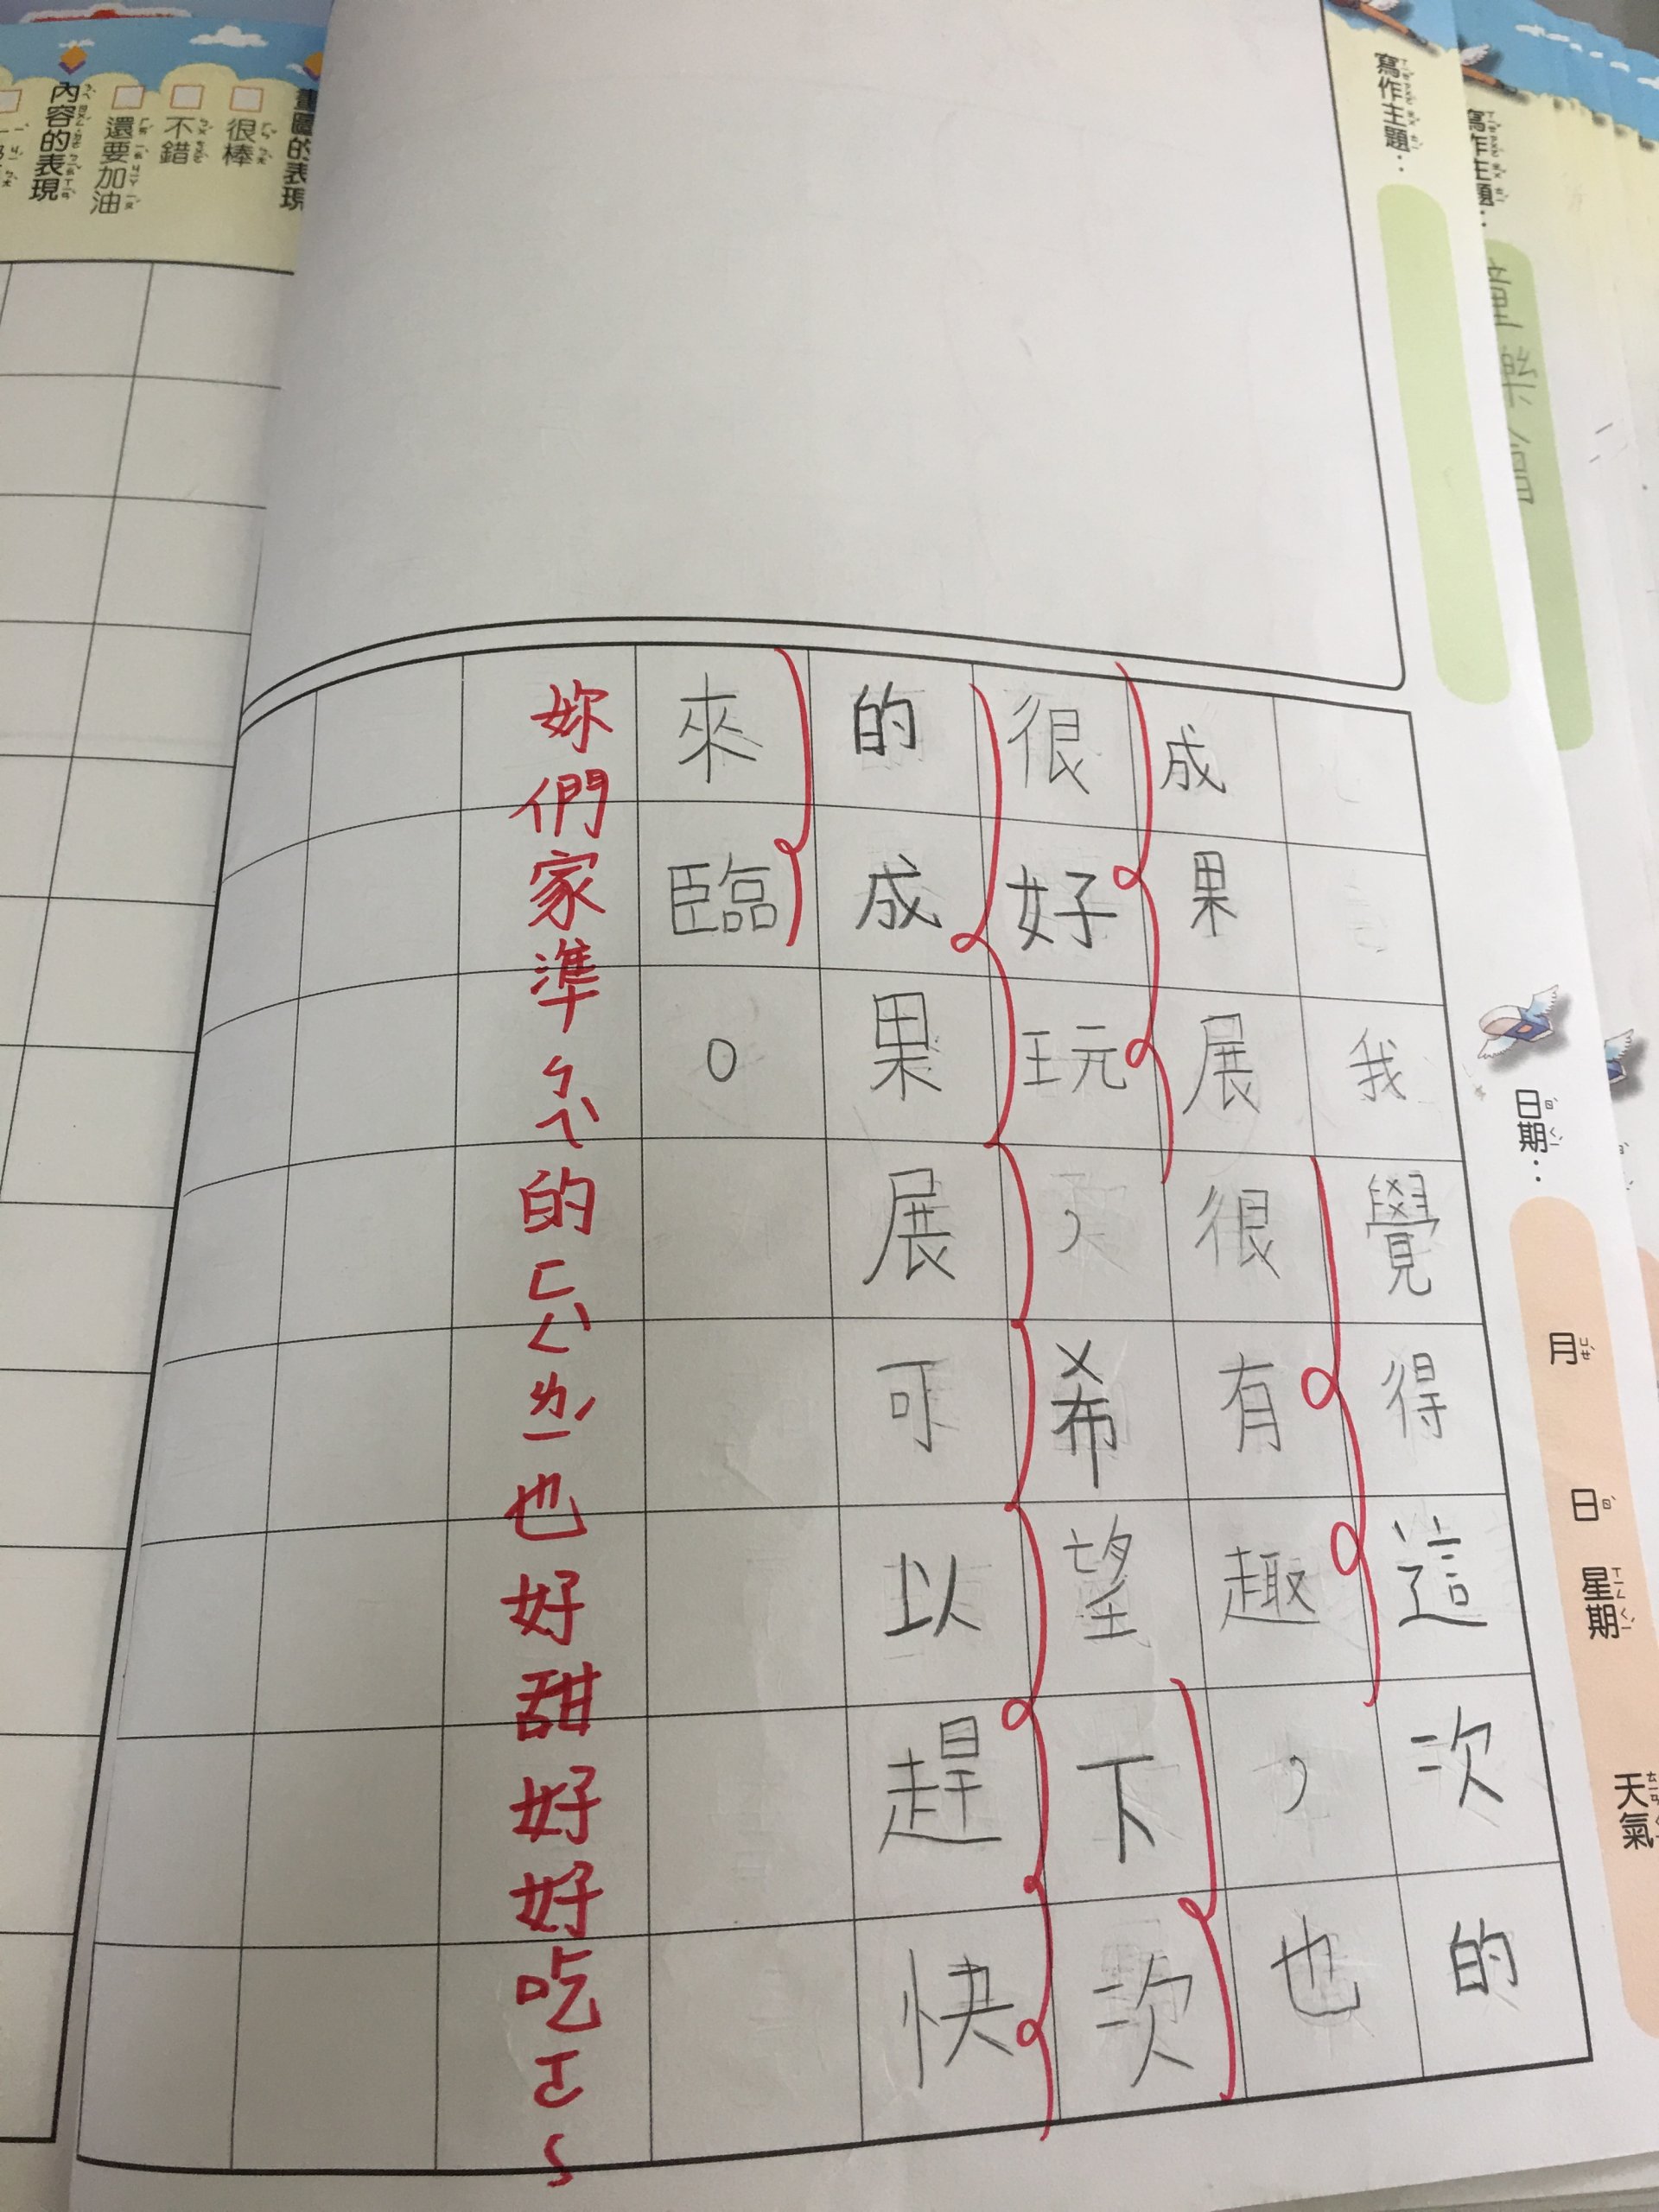 寫作主題：
童樂會
寫作主題：
日期：　月　日　星期　天氣
我覺得這次的
成果展很有趣，也
很好玩，希望下次
的成果展可以趕快
來臨。
妳們家準ㄅㄟˋ的ㄈㄥˋㄌㄧˊ也好甜好好吃ㄛ~
畫圖的表現
很棒
不錯
還要加油
內容的表現